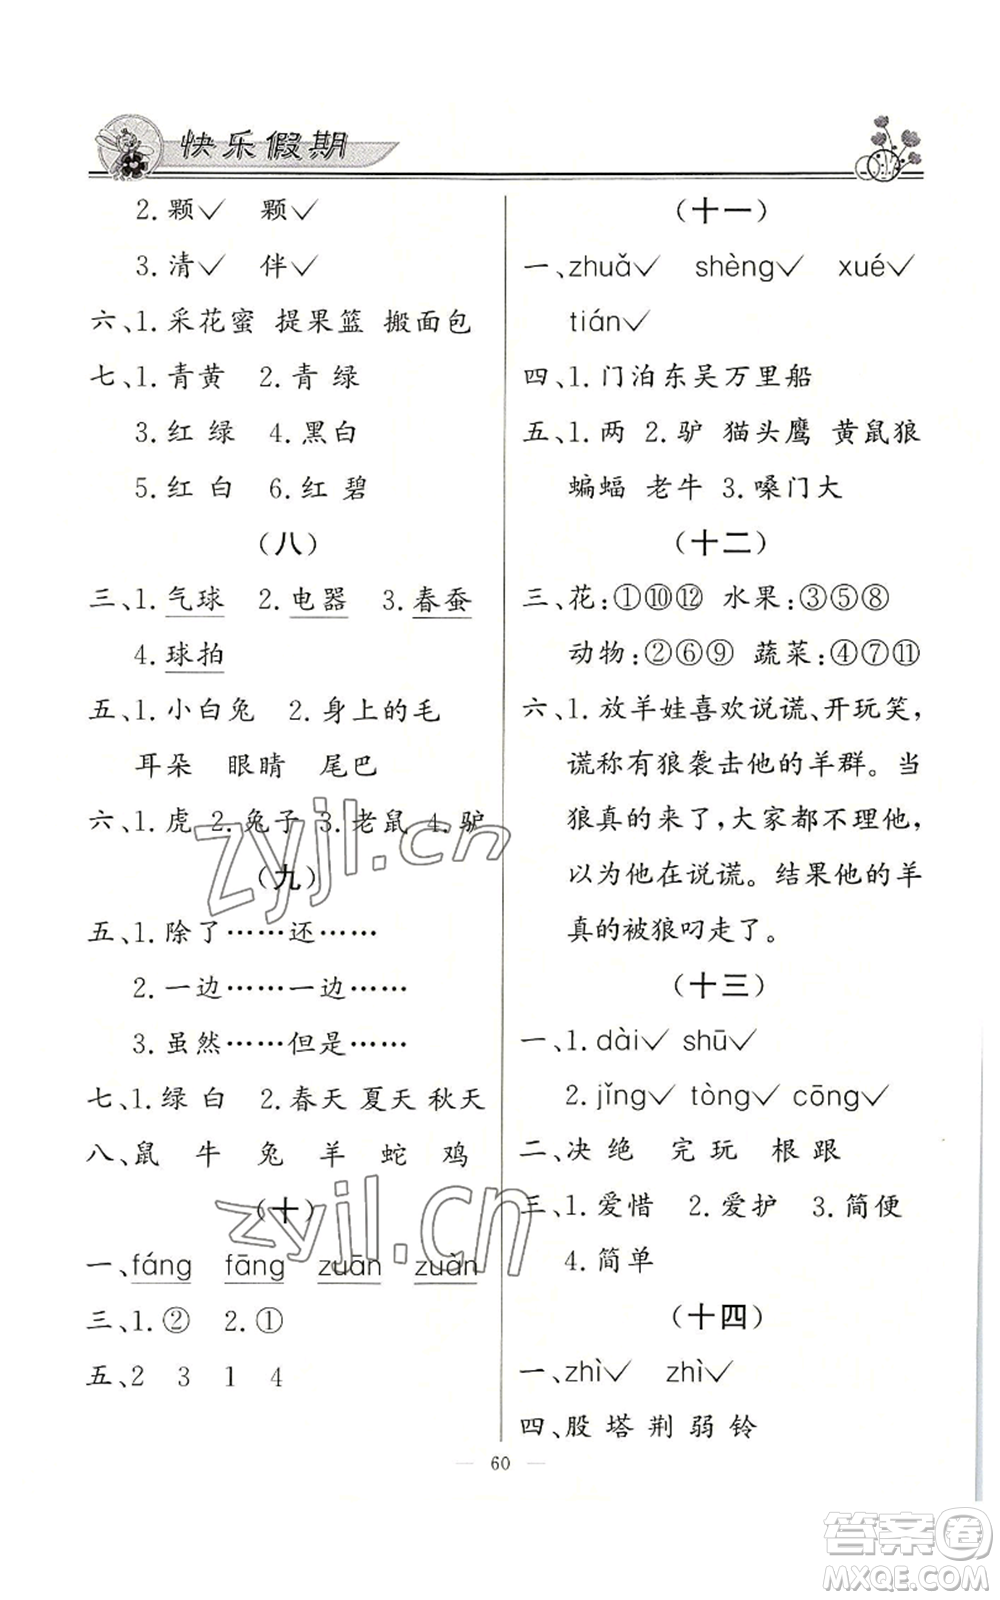 快乐假期
2.颗✓ 颗✓
3.清✓ 伴✓
六、1.采花蜜 提果篮 搬面包
七、1.青黄 2.青 绿
3.红 绿 4.黑白
5.红 白 6.红 碧
(八)
三、1.气球 2.电器 3.春蚕
4.球拍
五、1.小白兔 2.身上的毛
耳朵 眼睛 尾巴
六、1.虎 2.兔子 3.老鼠 4.驴
(九)
五、1.除了……还……
2.一边……一边……
3.虽然……但是……
七、1.绿 白 2.春天 夏天 秋天
八、鼠 牛 兔 羊 蛇 鸡
(十)
一、fáng fāng zuān zuàn
三、1.② 2.①
五、2 3 1 4
(十一)
一、zhuǎ✓ shèng✓ xué✓
tián✓
四、1.门泊东吴万里船
五、1.两 2.驴 猫头鹰 黄鼠狼
蝙蝠 老牛 3.嗓门大
(十二)
三、花:①⑩⑫ 水果:③⑤⑧
动物:②⑥⑨ 蔬菜:④⑦⑪
六、1.放羊娃喜欢说谎、开玩笑,
谎称有狼袭击他的羊群。当
狼真的来了,大家都不理他,
以为他在说谎。结果他的羊
真的被狼叼走了。
(十三)
一、1.dài✓ shū✓
2.jǐng✓ tòng✓ cōng✓
二、决 绝 完 玩 根 跟
三、1.爱惜 2.爱护 3.简便
4.简单
(十四)
一、zhì✓ zhì✓
四、股 塔 荆 弱 铃
60
zyjl.cn
zyjl.cn
答案卷
MXQE.COM